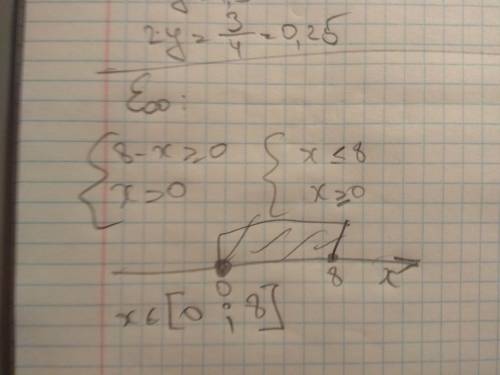 2y = 3/4 = 0,25
{ 8-x ≥ 0
x ≥ 0
{ x ≤ 8
x ≥ 0
0 8 x
x ∈ [0 ; 8]